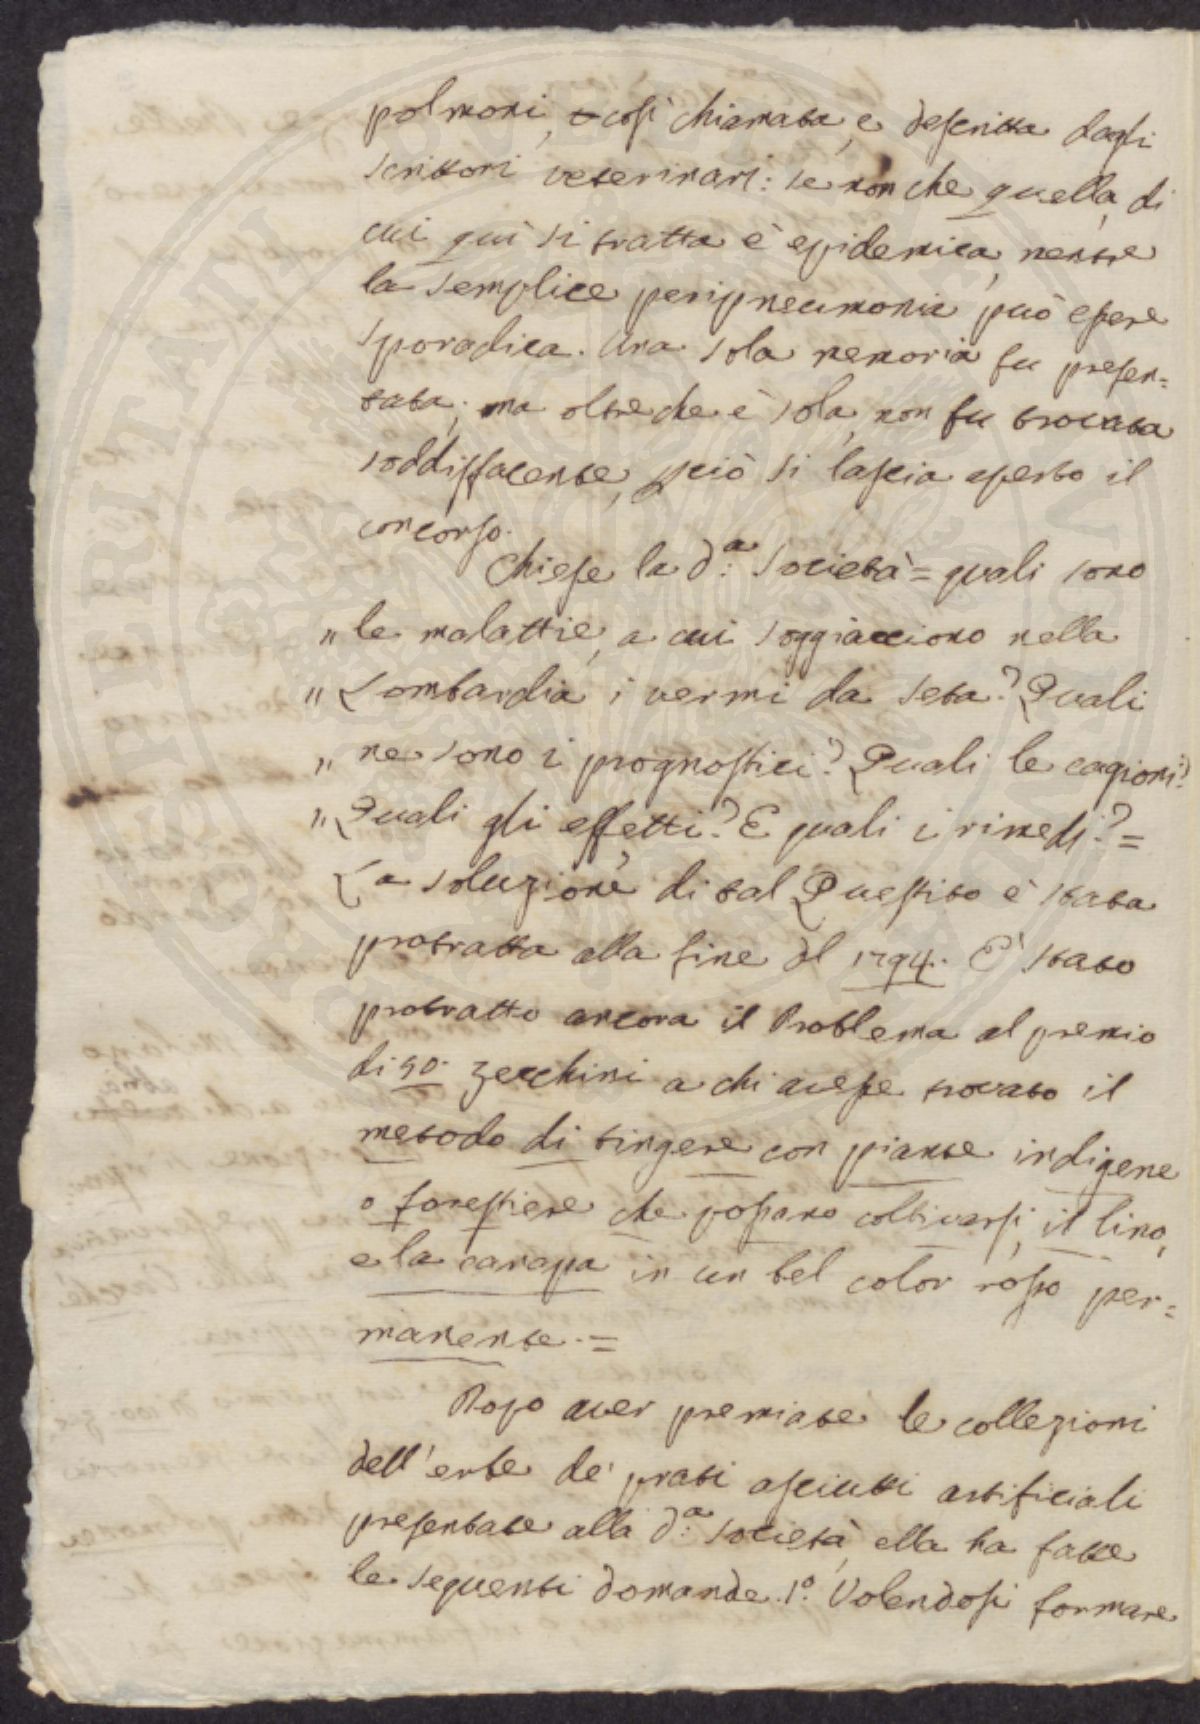 polmoni, così chiamata, e descritta dagli
scrittori veterinarj: se non che quella, di
cui quì si tratta è epidemica, mentre
la semplice peripneumonia può essere
sporadica. Una sola memoria fu presen=
tata; ma oltre che è sola, non fu trovata
soddisfacente, perciò si lascia aperto il
concorso.
Chiese la d:a Società = quali sono
" le malattie, a cui soggiacciono nella
" Lombardia i vermi da seta? Quali
" ne sono i prognostici? Quali le cagioni?
" Quali gli effetti? E quali i rimedj? =
La soluzione di tal Questito è stata
protratta alla fine del 1794. E' stato
protratto ancora il Problema al premio
di 50. Zecchini a chi avesse trovato il
metodo di tingere con piante indigene
o forestiere che possano coltivarsi, il lino,
e la canapa in un bel color rosso per=
manente. =
Dopo aver premiate le collezioni
dell'erbe de' prati asciutti artificiali
presentate alla d:a Società, ella ha fatte
le seguenti domande. 1.o Volendosi formare